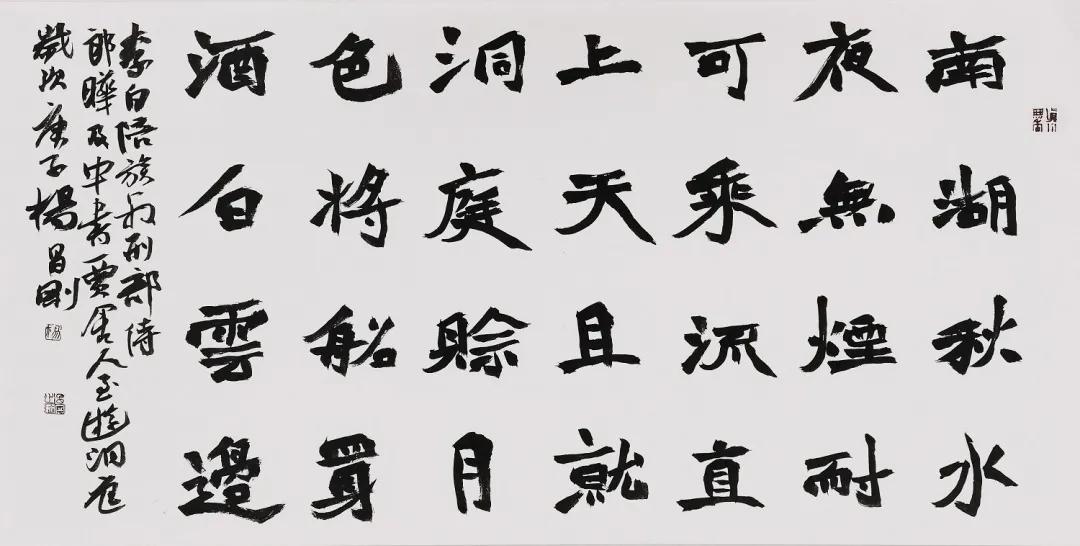 南湖秋水
夜無煙耐
可乘流直
上天且就
洞庭賒月
色將船買
酒白雲邊
李白陪族叔刑部侍
郎曄及中書賈舍人至遊洞庭
歲次庚子楊昌剛